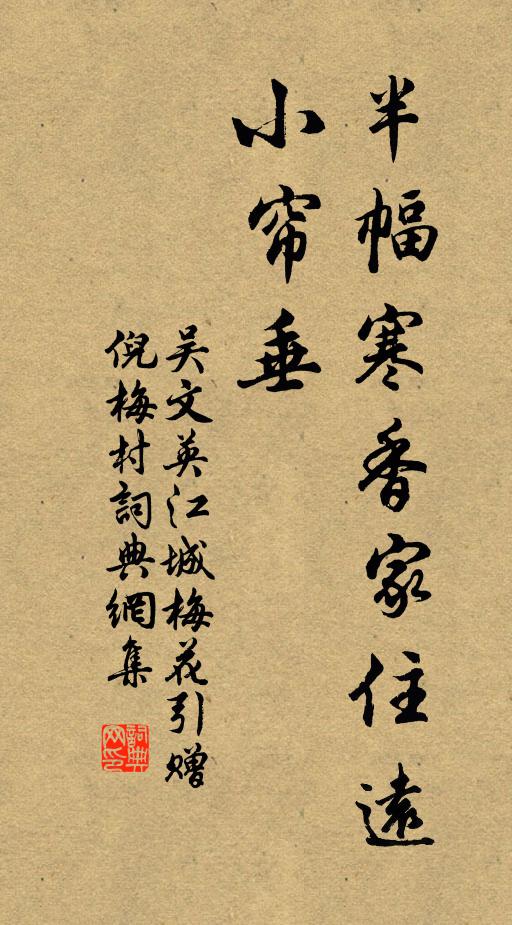 半幅寒香家住遠
小帘垂
吴文英江城梅花引赠
倪梅村詞典網集
詞典网印